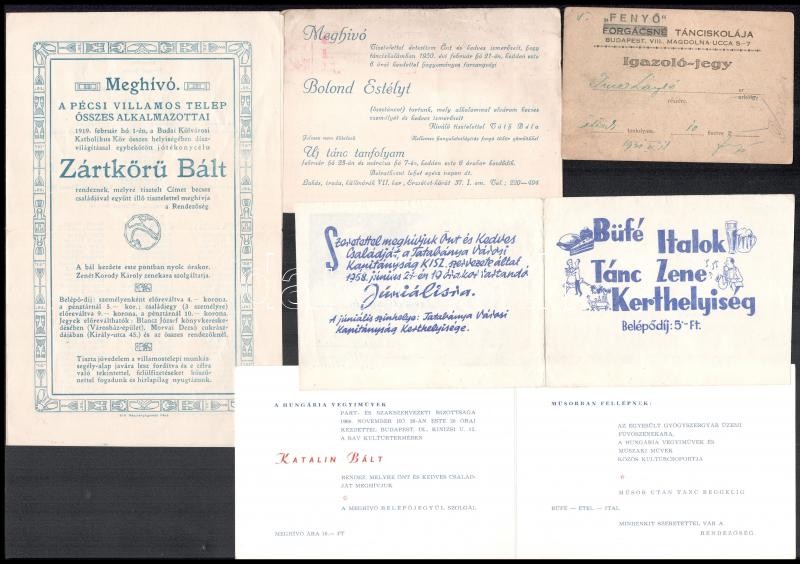 Meghívó.
A PÉCSI VILLAMOS TELEP
ÖSSZES ALKALMAZOTTAI
1919. február hó 1-én, a Budai Külvárosi
Katholikus Kör összes helyiségeiben dísz-
világítással egybekötött jótékonycélu
Zártkörű Bált
rendeznek, melyre tisztelt Címet becses
családjával együtt illő tisztelettel meghívja
a Rendezőség.
A bál kezdete este pontban nyolc órakor.
Zenét Koródy Károly zenekara szolgáltatja.
Belépő-díj: személyenként előreváltva 4.— korona,
a pénztárnál 5.— kor., családjegy (3 személyre)
előreváltva 9.— korona, a pénztárnál 10.— korona.
Jegyek előreválthatók: Blancz József könyvkereske-
désében (Városház-épület), Morvai Dezső cukrász-
dájában (Király-utca 45.) és az összes rendezőknél.
Tiszta jövedelem a villamostelepi munkás
segély-alap javára lesz fordítva és e célra
való tekintettel, felülfizetéseket köszö-
nettel fogadunk és hirlapilag nyugtázunk.
Meghívó
Tisztelettel értesitem Önt és kedves ismerőseit, hogy
tánciskolámban 1950. évi február hó 21-én, kedden este
6 órai kezdettel hagyományos farsangi
Bolond Estélyt
(össztáncot) tartunk, mely alkalommal elvárom becses
személyét és kedves ismerőseit
Kiváló tisztelettel Tóth Béla
Jelmez nem kötelező
Kellemes hangulatvilágitás forgó tükör gömbökkel
Új tánc tanfolyam
február hó 23-án és március hó 7-én, kedden este 6 órakor kezdődik.
Beiratkozni lehet egész napon át.
Lakás, iroda, különórák VII. ker., Erzsébet-körút 37. I. em. Tel.: 220—494
„FENYŐ”
FORGÁCSNÉ TÁNCISKOLÁJA
BUDAPEST, VIII. MAGDOLNA-UCCA 5-7
Igazoló-jegy
részére.
tanfolyam. 10
Szeretettel meghívjuk Önt és Kedves
Családját, a Tatabánya Városi
Kapitányság KISZ. szervezete által
1958. június 21-én 19 órakor tartandó
Júniálisra.
A júniális színhelye: Tatabánya Városi
Kapitányság Kerthelyisége.
Büfé Italok
Tánc Zene
Kerthelyiség
Belépődíj: 5'-Ft.
A HUNGÁRIA VEGYIMŰVEK
PÁRT- ÉS SZAKSZERVEZETI BIZOTTSÁGA
NOVEMBER HÓ 26-ÁN ESTE 20 ÓRAI
KEZDETTEL BUDAPEST, IX., KINIZSI U. 12.
A RAV KULTÚRTERMÉBEN
KATALIN BÁLT
RENDEZ MELYRE ÖNT ÉS KEDVES CSALÁD-
JÁT MEGHÍVJUK
A MEGHÍVÓ BELÉPŐJEGYÜL SZOLGÁL
MEGHÍVÓ ÁRA 10.— FT
MŰSORBAN FELLÉPNEK:
AZ EGYESÜLT GYÓGYSZERGYÁR ÜZEMI
FÚVÓSZENEKARA,
A HUNGÁRIA VEGYIMŰVEK ÉS
MŰSZAKI MŰVEK
KÖZÖS KULTÚRCSOPORTJA
MŰSOR UTÁN TÁNC REGGELIG
BÜFÉ — ÉTEL — ITAL
MINDENKIT SZERETETTEL VÁR A
RENDEZŐSÉG